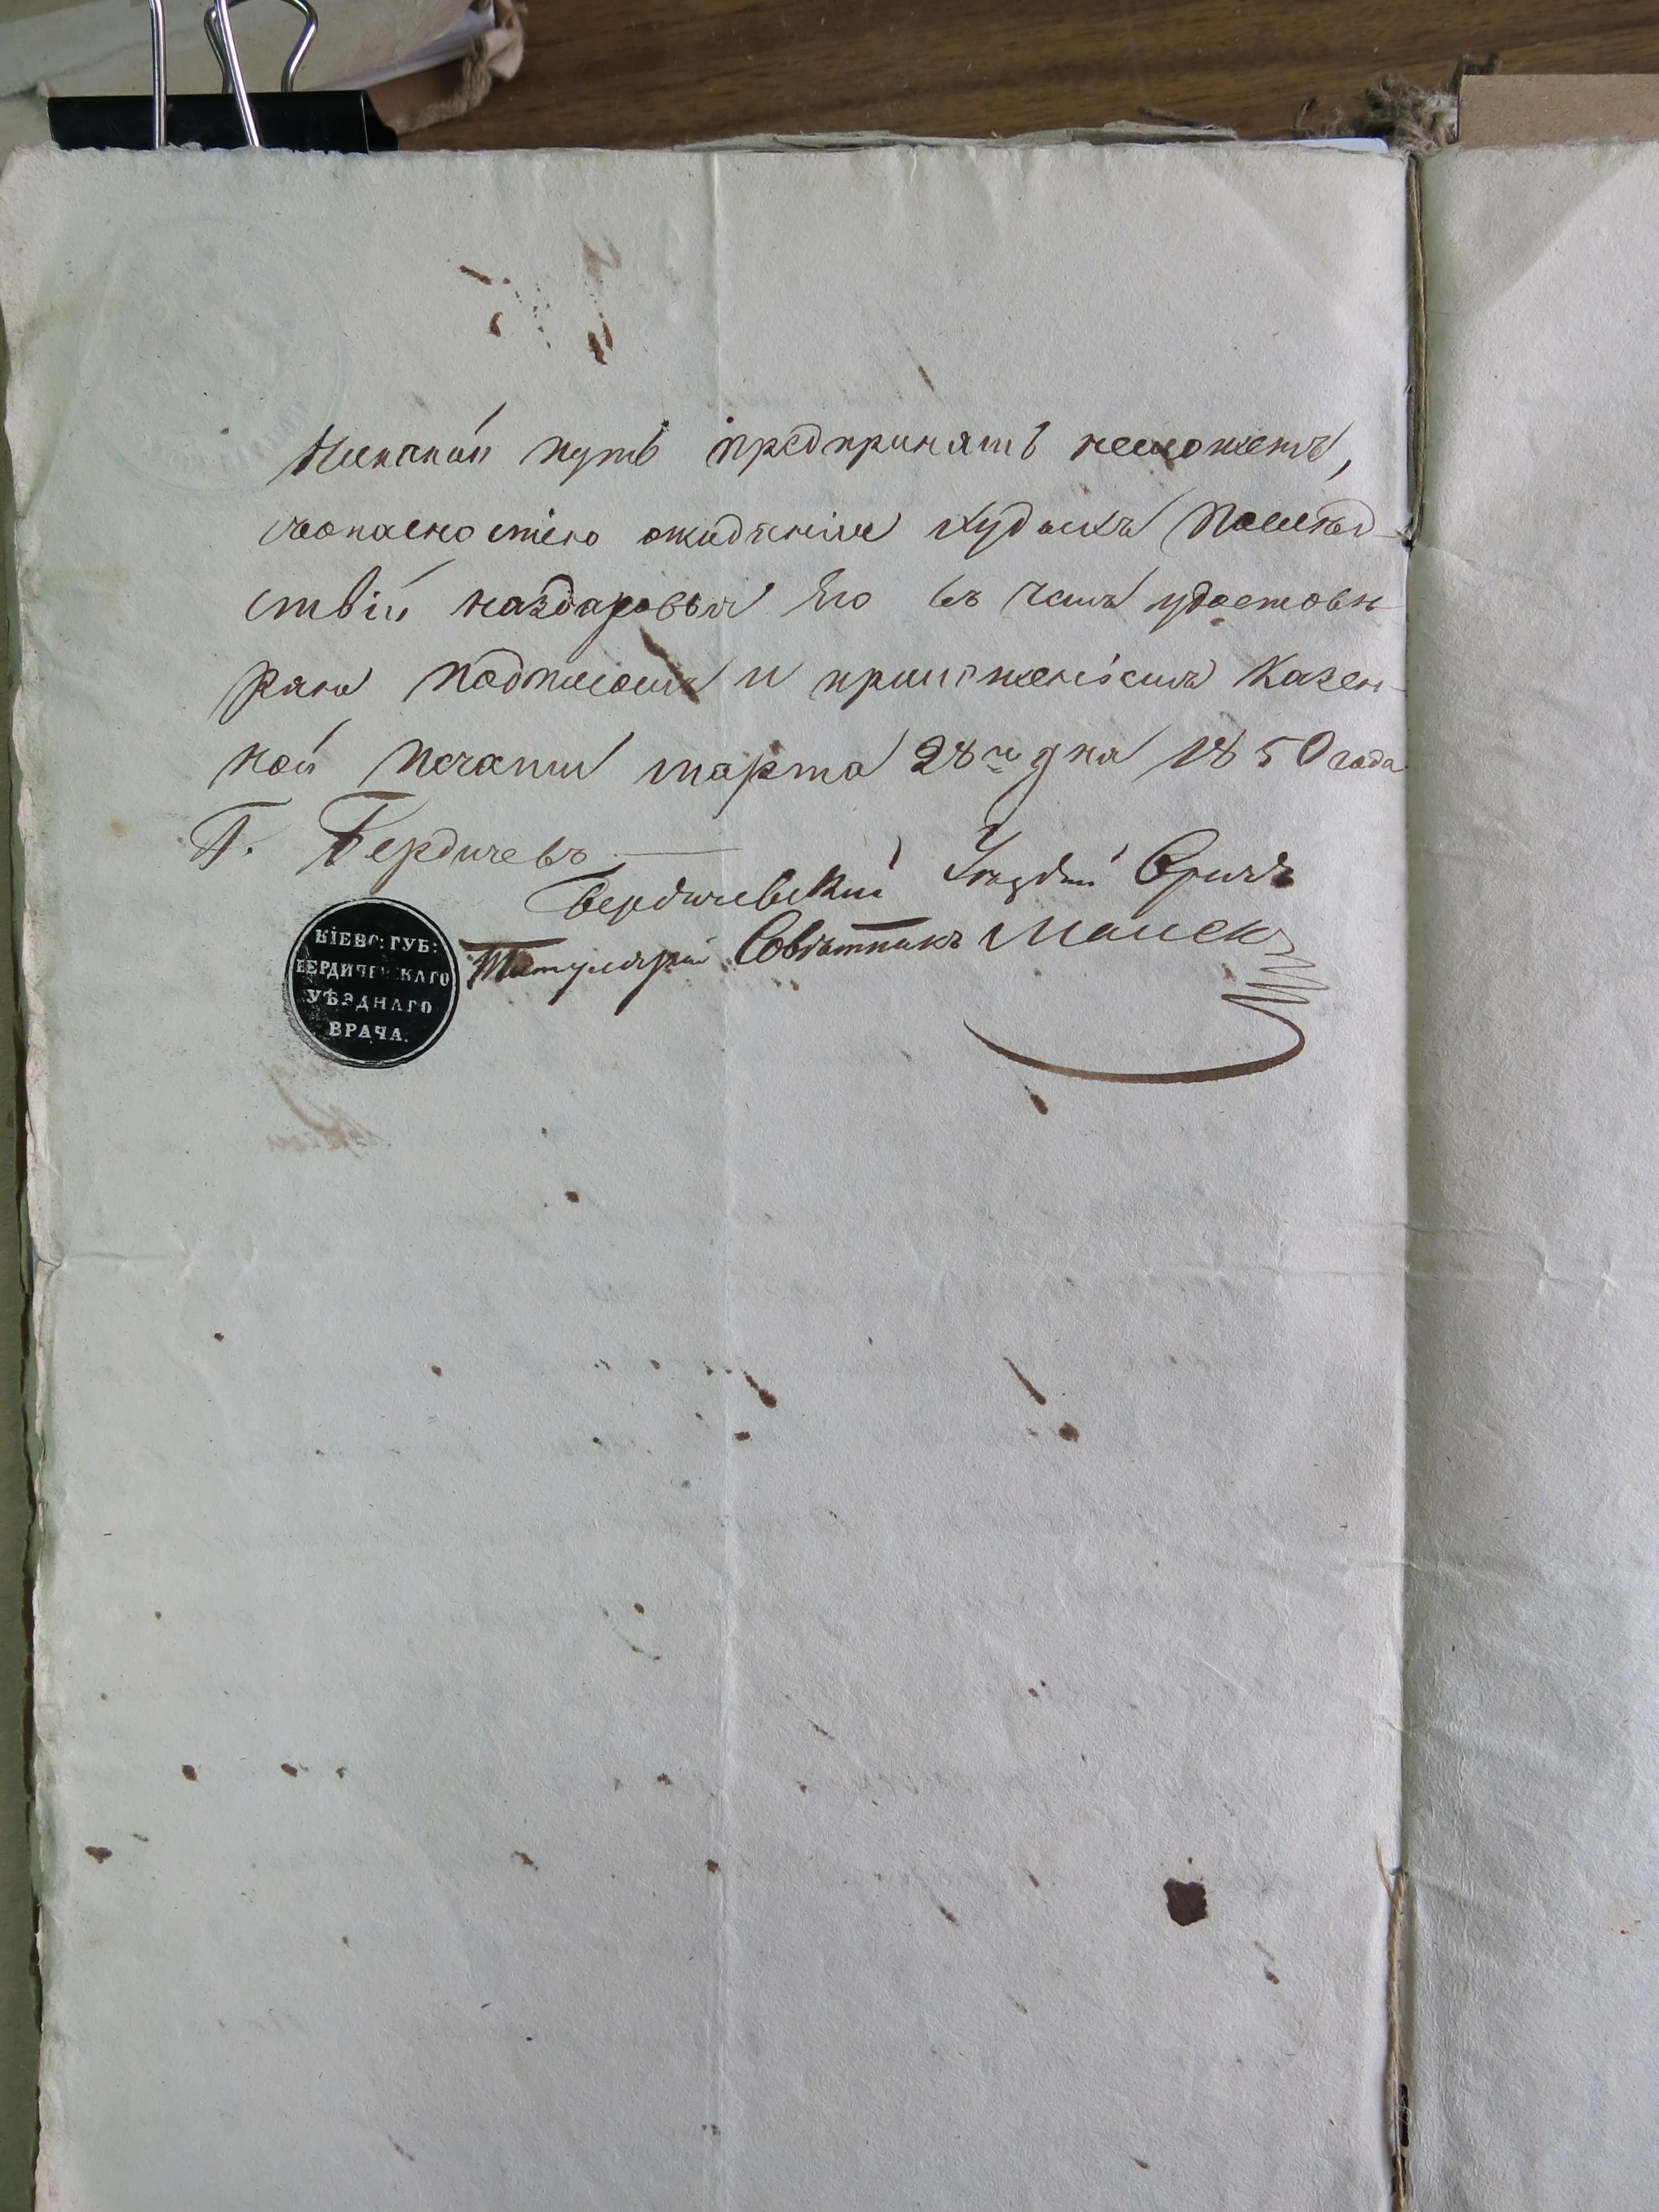 Никакой путь предпринять неможетъ,
съопасностію ожиданія худыхъ послѣд-
ствій наздаровья Его въ чемъ удостовѣ
ряю подписомъ и приложеніемъ Казен-
ной печати марта 28го дня 1850 года
Г. Бердичевъ
Бердичевский Уездный Врачъ
Титулярный Совѣтникъ
КІЕВС: ГУБ:
БЕРДИЧЕВСКАГО
УѢЗДНАГО
ВРАЧА.